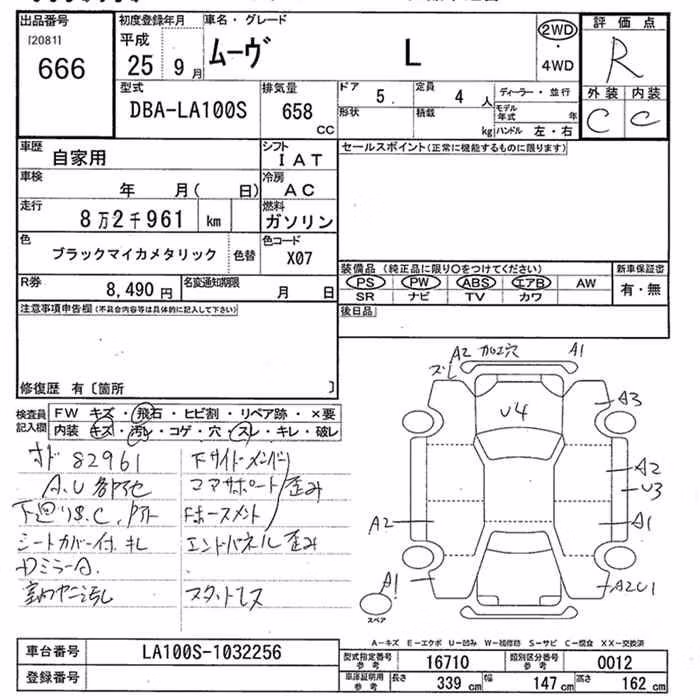 出品番号
[20811
666
初度登録年月
平成
25年9月
車名・グレード
ムーヴ L
2WD
・
4WD
評価点
R
外装 内装
C C
型式
DBA-LA100S
排気量
658 CC
ドア
5
定員
4人
形状
積載 kg
ディーラー・並行
モデル年式 年
ハンドル 左・右
車歴
自家用
シフト
IAT
セールスポイント(正常に機能するものに限ります)
車検
年 月( 日)
冷房
AC
走行
8万2千961 km
燃料
ガソリン
色
ブラックマイカメタリック
色替
色コード
X07
装備品(純正品に限り○をつけてください)
PS PW ABS エアB AW
SR ナビ TV カワ
新車保証書
有・無
R券
8,490円
名変通知期限
月 日
後日品
注意事項申告欄(不具合内容等は具体的に記入して下さい)
修復歴 有〔箇所 〕
検査員記入欄
FW キズ・飛石・ヒビ割・リペア跡・×要
内装 キズ・汚レ・コゲ・穴・スレ・キレ・破レ
82961
A.U
シートカバー付.
Fサイドメンバー
コアサポート 歪み
エンドパネル歪み
スタットレス
A2 加工穴 A1
ズレ
U4
A3
A2
U3
A1
A2
A1
A2U1
スペア
A-キズ E-エクボ U-凹み W-補修跡 S-サビ C-腐食 XX-交換済
車台番号
LA100S-1032256
登録番号
型式指定番号
参考
16710
類別区分番号
参考
0012
車庫証明用
参考
長さ 339 cm
幅 147 cm
高さ 162 cm